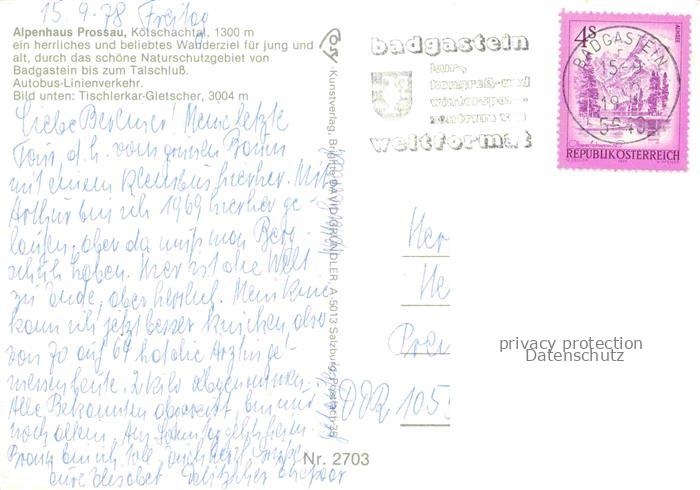 15.9.78 Freitag
Alpenhaus Prossau, Kötschachtal, 1300 m
ein herrliches und beliebtes Wanderziel für jung und
alt, durch das schöne Naturschutzgebiet von
Badgastein bis zum Talschluß.
Autobus-Linienverkehr.
Bild unten: Tischlerkar-Gletscher, 3004 m
Liebe Berliner! Meine letzte
Tour, d.h. vom grünen Baum
mit einem Kleinbus hierher. Mit
Arthur bin ich 1969 hierher ge-
laufen, aber da muß man Berg-
schuh haben. Hier ist die Welt
zu Ende, aber herrlich. Mein Knie
kann ich jetzt besser knicken, also
von 70 auf 64 hat die Ärztin ge-
messen heute. 2 kilo abgenommen.
Alle Bekannten abgereist, bin nun
noch allein. Am Samstag
bin ich
eure
Cosy
-Kunstverlag, Brigitte DAVID/GRÜNDLER, A-5013 Salzburg, Postfach 36
Nr. 2703
badgastein
kur-,
kongreß- und
wintersport-
zentrum von
weltformat
4S
ALMSEE
REPUBLIK ÖSTERREICH
BADGASTEIN
15.-9.
5640
Her
He
Pren
DDR 105
privacy protection
Datenschutz